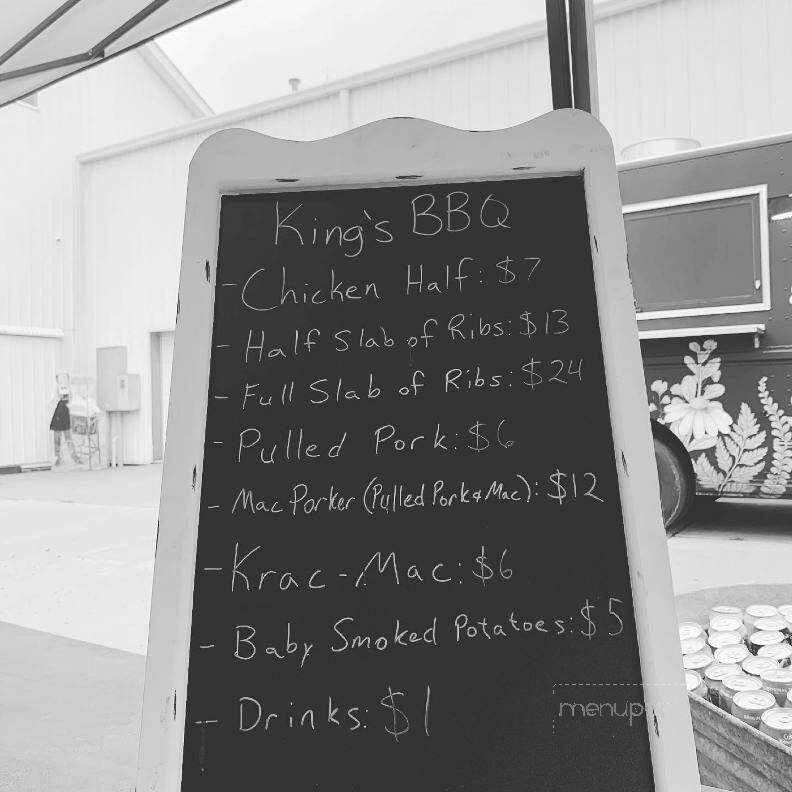 King's BBQ
- Chicken Half: $7
- Half Slab of Ribs: $13
- Full Slab of Ribs: $24
- Pulled Pork: $6
- Mac Porker (Pulled Pork & Mac): $12
- Krac-Mac: $6
- Baby Smoked Potatoes: $5
-- Drinks: $1
menup